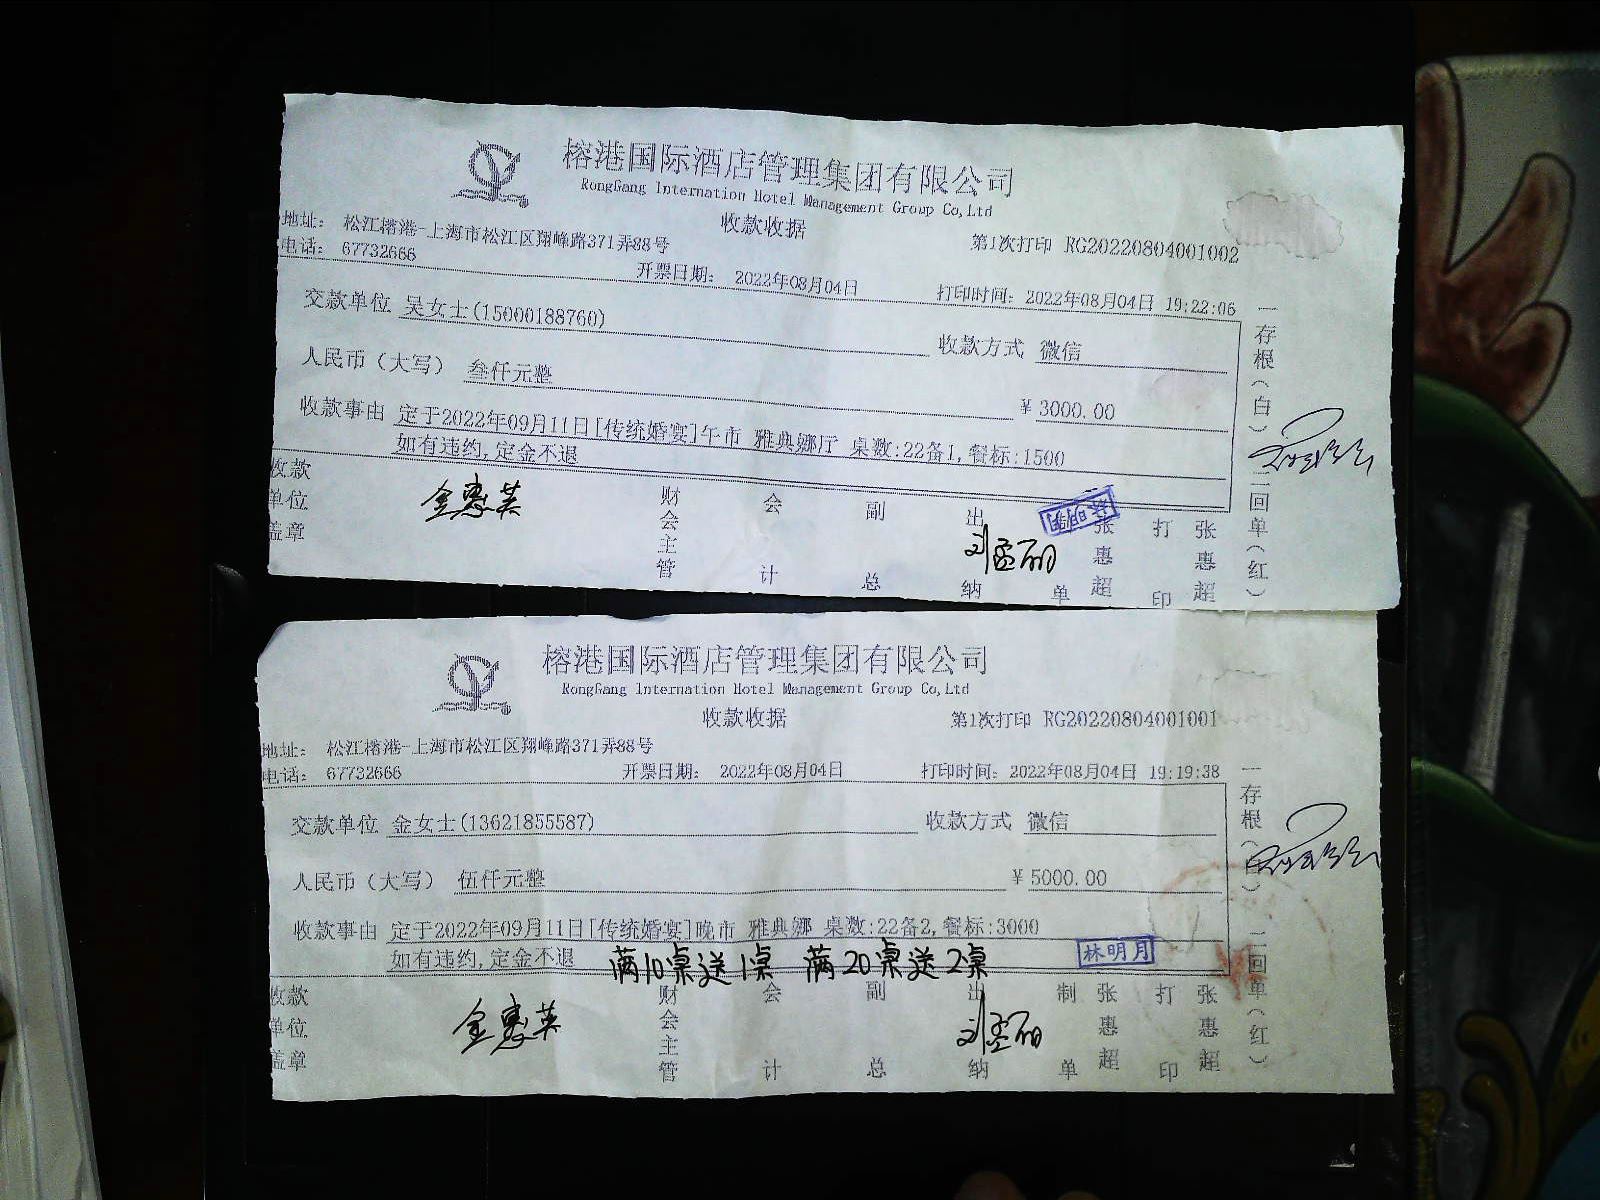 榕港国际酒店管理集团有限公司
RongGang Internation Hotel Management Group Co,Ltd
收款收据
第1次打印 RG20220804001002
地址： 松江榕港-上海市松江区翔峰路371弄88号
电话： 67732666
开票日期： 2022年08月04日
打印时间：2022年08月04日 19:22:06
交款单位 吴女士(15000188760)
收款方式 微信
人民币（大写） 叁仟元整
¥ 3000.00
收款事由 定于2022年09月11日[传统婚宴]午市 雅典娜厅 桌数:22备1,餐标:1500
如有违约,定金不退
收款单位盖章
金惠英
财会主管
会计
副总
出纳
刘孟丽
林明月
单
张惠超
打印
张惠超
一存根（白）二回单（红）
榕港国际酒店管理集团有限公司
RongGang Internation Hotel Management Group Co,Ltd
收款收据
第1次打印 RG20220804001001
地址： 松江榕港-上海市松江区翔峰路371弄88号
电话： 67732666
开票日期： 2022年08月04日
打印时间：2022年08月04日 19:19:38
交款单位 金女士(13621855587)
收款方式 微信
人民币（大写） 伍仟元整
¥ 5000.00
收款事由 定于2022年09月11日[传统婚宴]晚市 雅典娜 桌数:22备2,餐标:3000
如有违约,定金不退
满10桌送1桌 满20桌送2桌
林明月
收款单位盖章
金惠英
财会主管
会计
副总
出纳
刘孟丽
制单
张惠超
打印
张惠超
一存根（白）二回单（红）